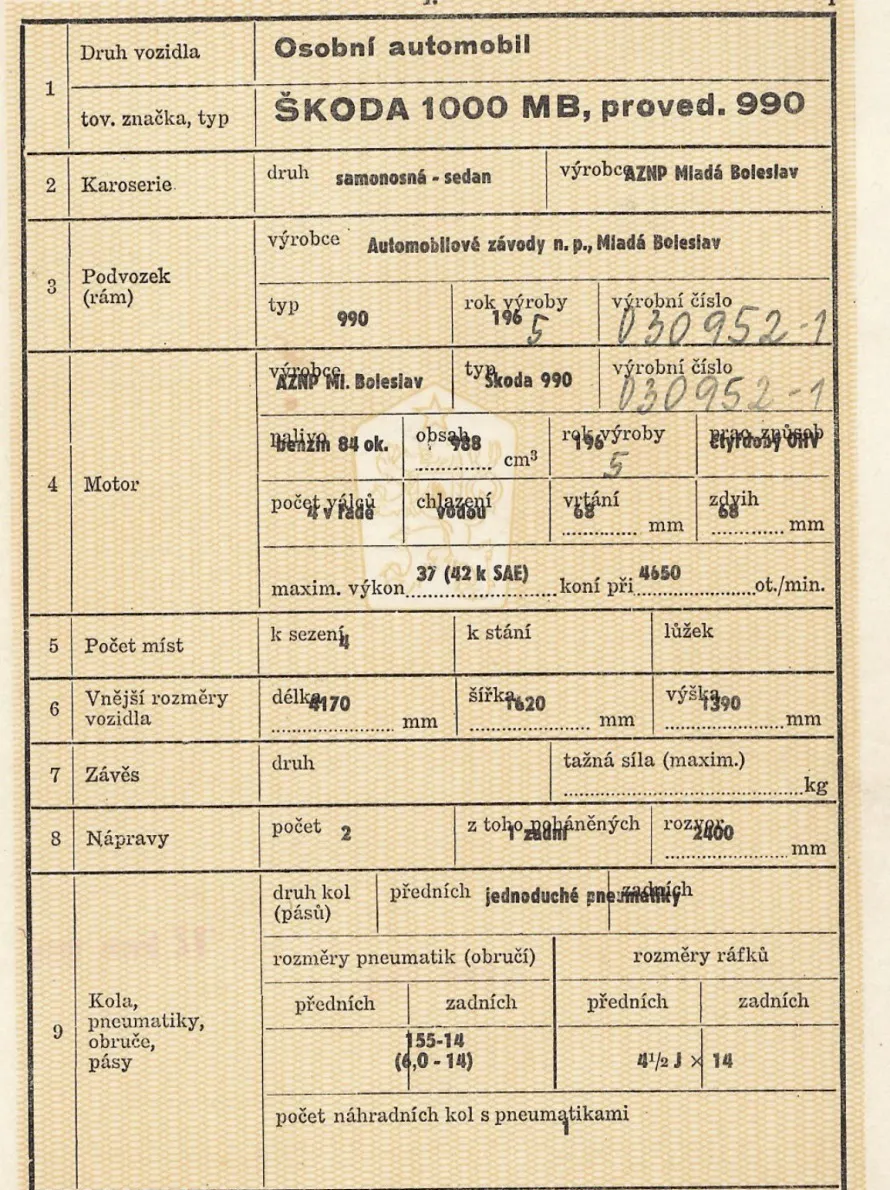 1 Druh vozidla Osobní automobil
tov. značka, typ ŠKODA 1000 MB, proved. 990
2 Karoserie druh samonosná - sedan výrobce AZNP Mladá Boleslav
3 Podvozek (rám) výrobce Automobilové závody n. p., Mladá Boleslav
typ 990 rok výroby 1965 výrobní číslo 030952-1
4 Motor výrobce AZNP Ml. Boleslav typ Škoda 990 výrobní číslo 030952-1
palivo benzin 84 ok. obsah 988 cm³ rok výroby 1965 prac. způsob čtyřdobý OHV
počet válců 4 v řadě chlazení vodou vrtání 68 mm zdvih 68 mm
maxim. výkon 37 (42 k SAE) koní při 4650 ot./min.
5 Počet míst k sezení 4 k stání lůžek
6 Vnější rozměry vozidla délka 4170 mm šířka 1620 mm výška 1390 mm
7 Závěs druh tažná síla (maxim.) kg
8 Nápravy počet 2 z toho poháněných 1 zadní rozvor 2400 mm
9 Kola, pneumatiky, obruče, pásy
druh kol (pásů) předních jednoduché pneumatiky zadních
rozměry pneumatik (obručí) rozměry ráfků
předních zadních předních zadních
155-14
(6,0 - 14) 4½ J × 14
počet náhradních kol s pneumatikami
1